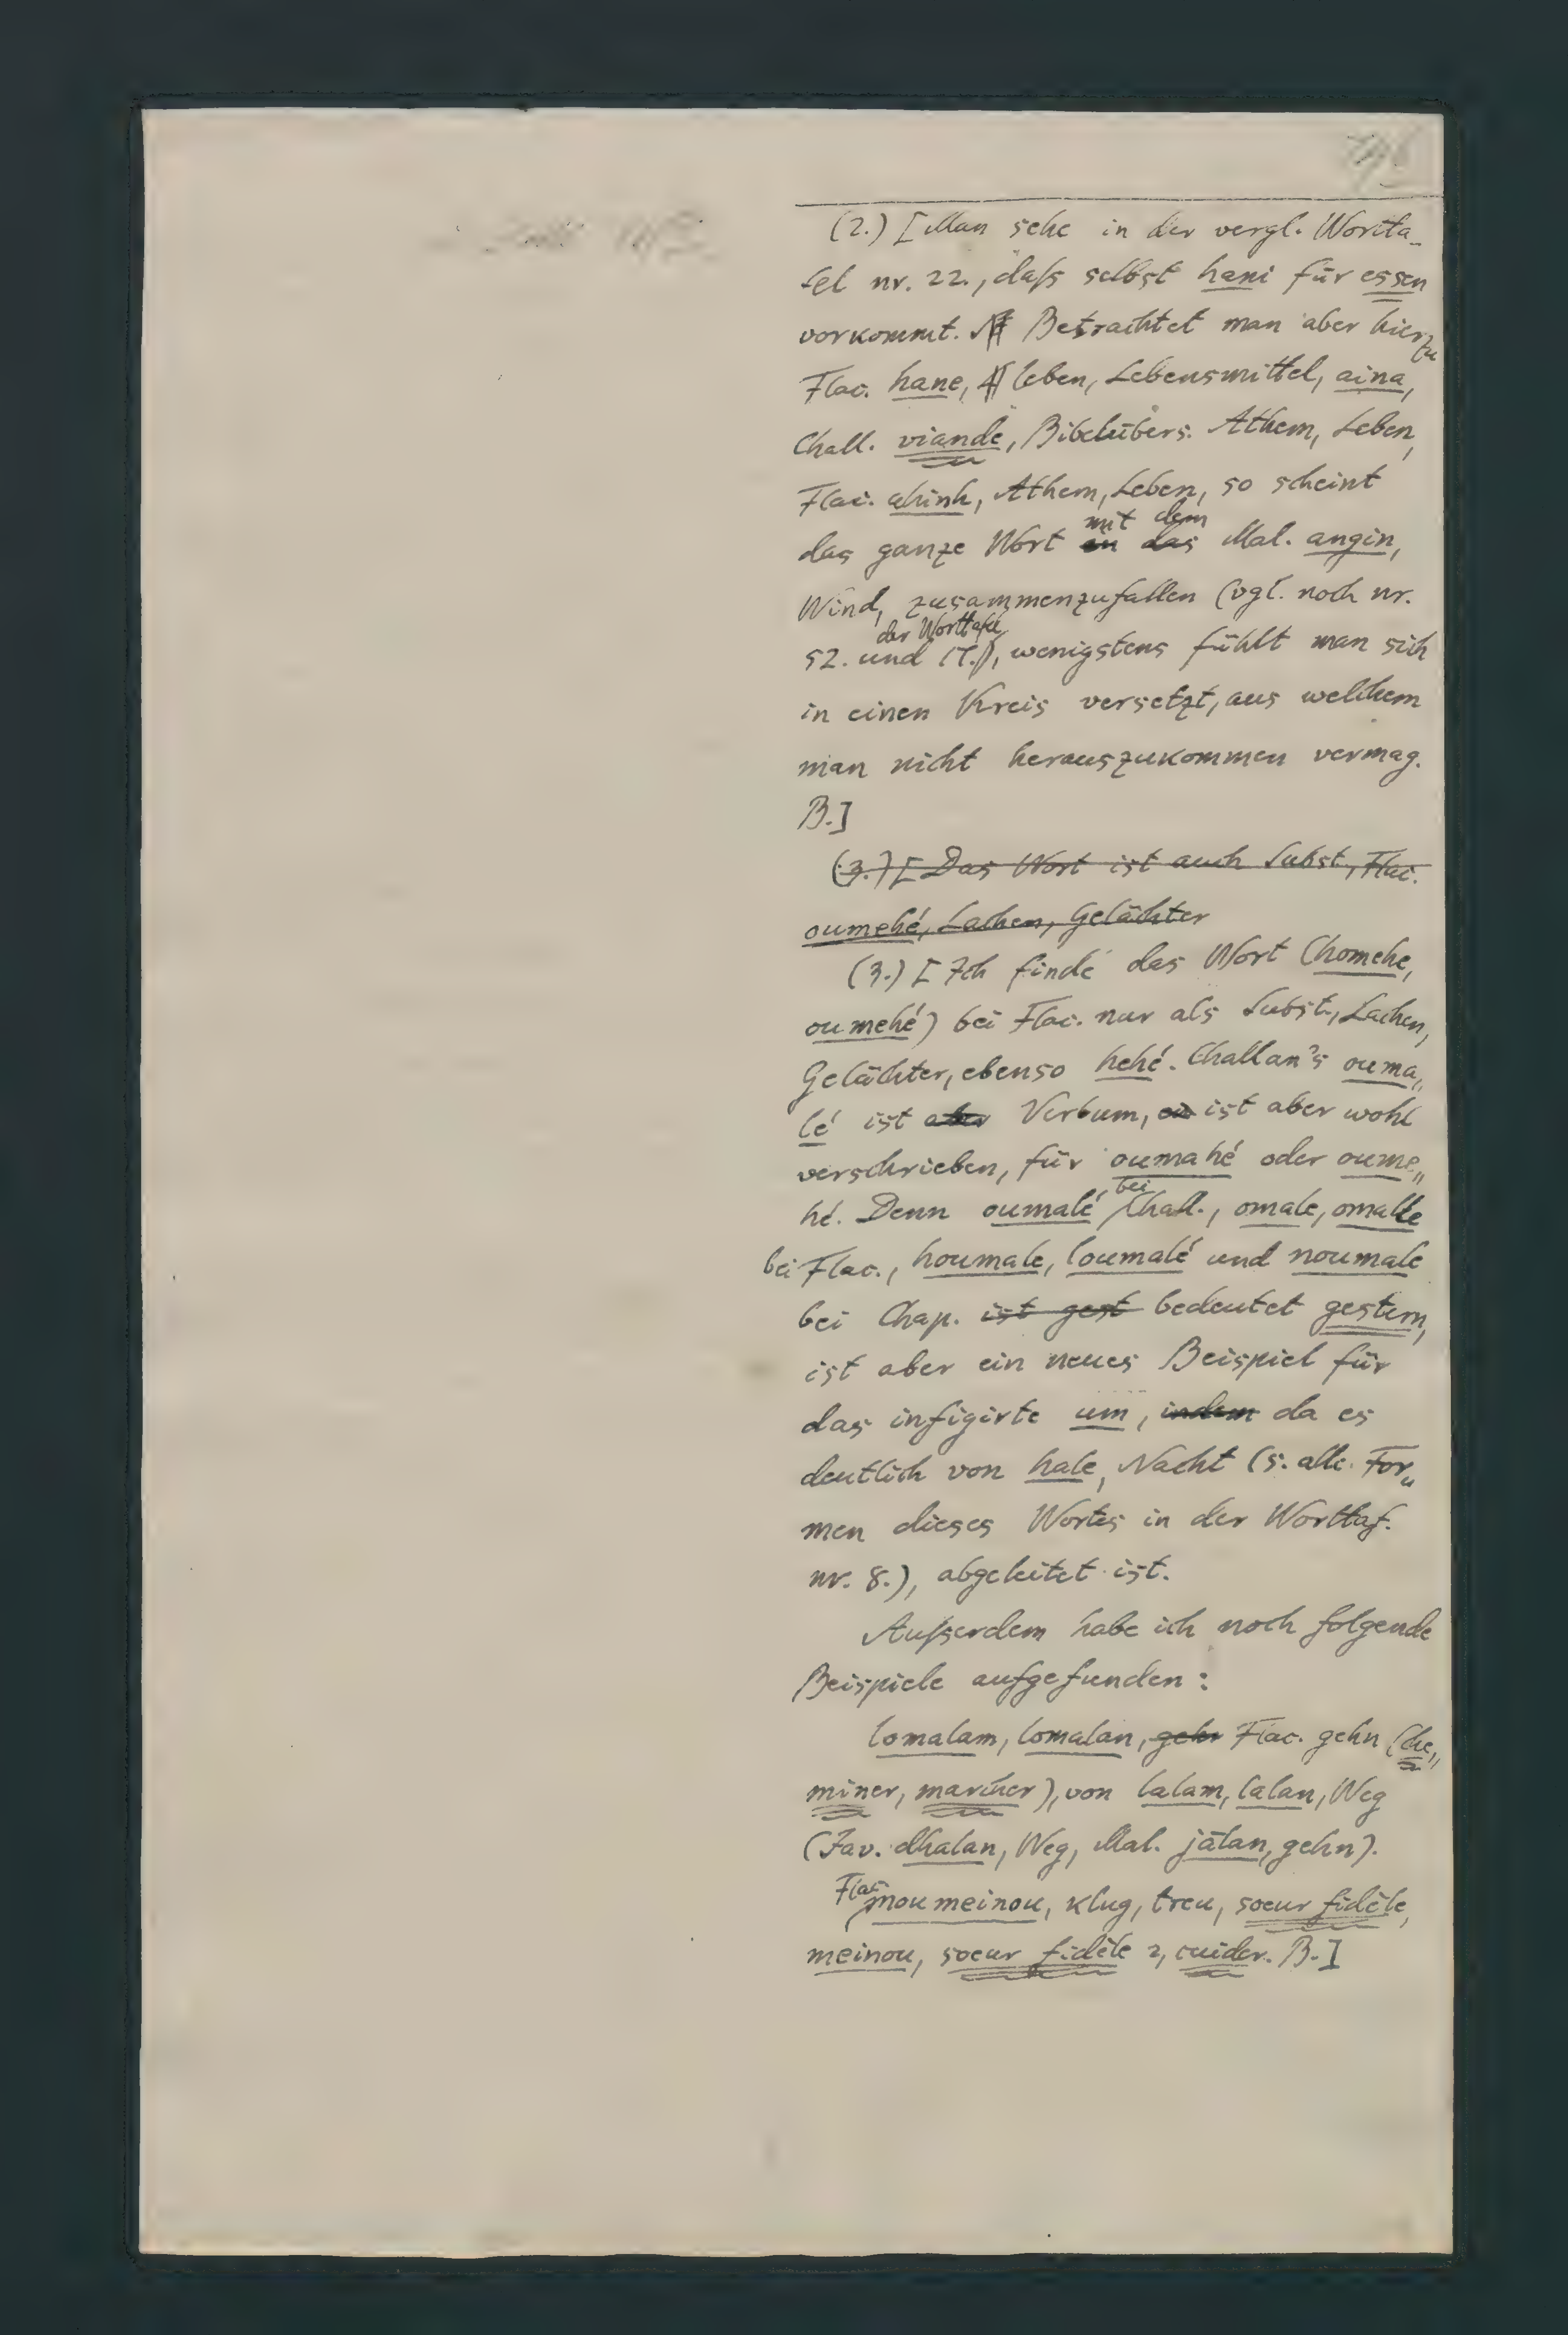 (2.) [Man sehe in der vergl. Wortta-
fel nr. 22., daſs selbst hani für essen
vorkommt. Betrachtet man aber hierzu
Flac. hane, leben, Lebensmittel, aina,
Chall. viande, Bibelübers. Athem, Leben,
Flac. ahinh, Athem, Leben, so scheint
mit dem
das ganze Wort in das Mal. angin,
Wind, zusammenzufallen (vgl. noch nr.
der Worttafel
52. und 17.), wenigstens fühlt man sich
in einen Kreis versetzt, aus welchem
man nicht herauszukommen vermag.
B.]
(3.) [Das Wort ist auch Subst., Flac.
oumehé, Lachen, Gelächter
(3.) [Ich finde das Wort (homehe,
oumehé) bei Flac. nur als Subst., Lachen,
Gelächter, ebenso hehé. Challan's ouma„
lé ist aber Verbum, ist aber wohl
verschrieben, für oumahé oder oume„
hé. Denn oumalé, bei Chall., omale, omalle
bei Flac., houmale, loumalé und noumale
bei Chap. ist gest bedeutet gestern,
ist aber ein neues Beispiel für
das infigirte um, indem da es
deutlich von hale, Nacht (s. alle For„
men dieses Wortes in der Worttaf.
nr. 8.), abgeleitet ist.
Auſserdem habe ich noch folgende
Beispiele aufgefunden:
lomalam, lomalan, gehn Flac. gehn (che„
miner, marcher), von lalam, lalan, Weg
(Jav. dhalan, Weg, Mal. jālan, gehn).
Flac. moumeinou, klug, treu, soeur fidèle,
meinou, soeur fidèle 2, cuider. B.]